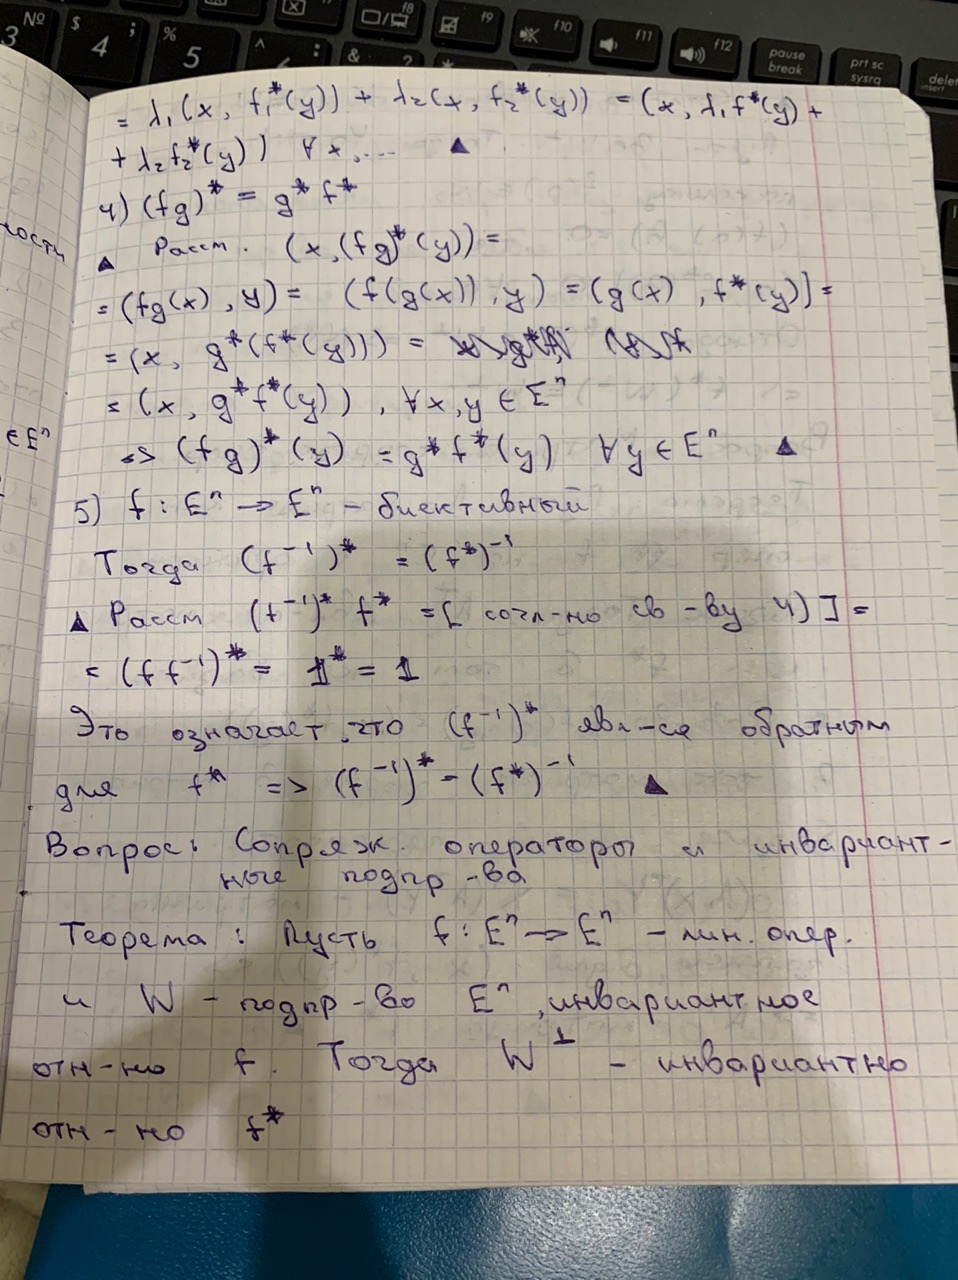 3 № $ 4 ; % 5 ^ 6 : & ? * f8 f9 f10 f11 f12 pause break prt sc sysrq delete insert
= λ₁(x, f₁*(y)) + λ₂(x, f₂*(y)) = (x, λ₁f*(y) +
+ λ₂f₂*(y)) ∀x,... ▲
4) (fg)* = g* f*
▲ Расст. (x, (fg)*(y)) =
= (fg(x), y) = (f(g(x)), y) = (g(x), f*(y)] =
= (x, g*(f*(y))) =
= (x, g*f*(y)), ∀x,y ∋ Eⁿ
=> (fg)*(y) = g*f*(y) ∀y ∋ Eⁿ ▲
5) f : Eⁿ → Eⁿ - биективный
Тогда (f⁻¹)* = (f*)⁻¹
▲ Расст (f⁻¹)* f* = [согл-но св-ву 4)] =
= (f f⁻¹)* = 1* = 1
Это означает, что (f⁻¹)* явл-ся обратным
для f* => (f⁻¹)* - (f*)⁻¹ ▲
Вопрос: Сопряж. операторы и инвариант-
ные подпр-ва
Теорема: Пусть f : Eⁿ → Eⁿ - лин. опер.
и W - подпр-во Eⁿ, инвариантное
отн-но f. Тогда W⊥ - инвариантно
отн-но f*
ности
∋ Eⁿ